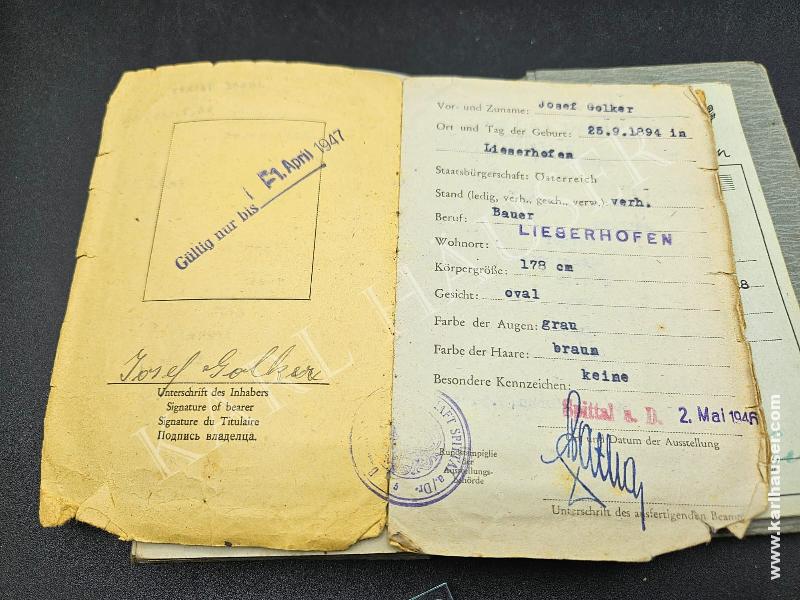 Gültig nur bis 1. April 1947
Josef Golker
Unterschrift des Inhabers
Signature of bearer
Signature du Titulaire
Подпись владелца.
Vor- und Zuname: Josef Golker
Ort und Tag der Geburt: 25.9.1894 in
Lieserhofen
Staatsbürgerschaft: Österreich
Stand (ledig, verh., gesch., verw.): verh.
Beruf: Bauer
Wohnort: LIESERHOFEN
Körpergröße: 178 cm
Gesicht: oval
Farbe der Augen: grau
Farbe der Haare: braun
Besondere Kennzeichen: keine
Spittal a. D. 2. Mai 1946
Ort und Datum der Ausstellung
Rundstampiglie
der
Ausstellungs-
behörde
SPITTAL a./Dr.
Unterschrift des ausfertigenden Beamt
KARL HAUSER
www.karlhauser.com